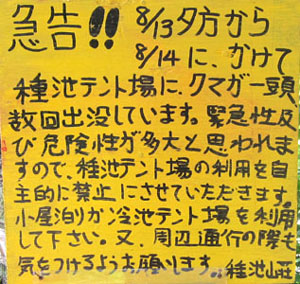 急告!! 8/13夕方から
8/14に、かけて
種池テント場に、クマが一頭
数回出没しています。緊急性及
び危険性が多大と思われま
すので、種池テント場の利用を自
主的に禁止にさせていただきます。
小屋泊りか冷池テント場を利用
して下さい。又、周辺通行の際も
気をつけるようお願いします。種池山荘